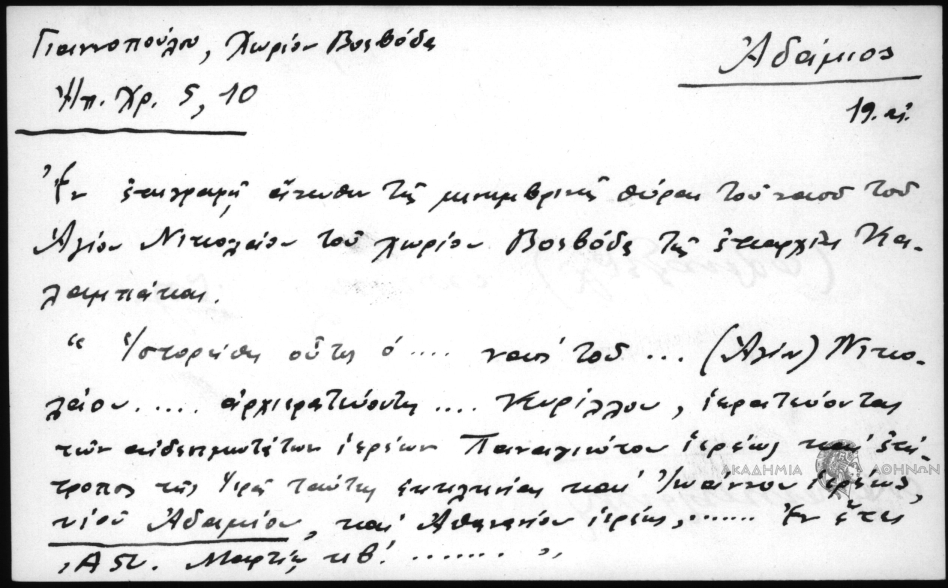 Γιαννοπούλου, Χωρίον Βοεβόδα
Ἠπ. Χρ. 5, 10
Ἀδάμιος
19. αἰ.
Ἐν ἐπιγραφῇ ἄνωθεν τῆς μεσημβρινῆς θύρας τοῦ ναοῦ τοῦ
Ἁγίου Νικολάου τοῦ χωρίου Βοεβόδα τῆς ἐπαρχίας Κα-
λαμπάκας.
“ Ἱστορήθη οὗτος ὁ .... ναός τοῦ ... (Ἁγίου) Νικο-
λάου ..... ἀρχιερατεύοντος .... Κυρίλλου, ἱερατεύοντος
τῶν αἰδεσιμωτάτων ἱερέων Παναγιώτου ἱερέως καί ἐπί-
τροπος τῆς ἱερᾶς ταύτης ἐκκλησίας καί Ἰωάννου ἱερέως,
υἱοῦ Ἀδαμίου, καί Ἀθανασίου ἱερέως, ...... Ἐν ἔτει
Μαρτίου κβ΄. ....... ”
ΑΚΑΔΗΜΙΑ ΑΘΗΝΩΝ